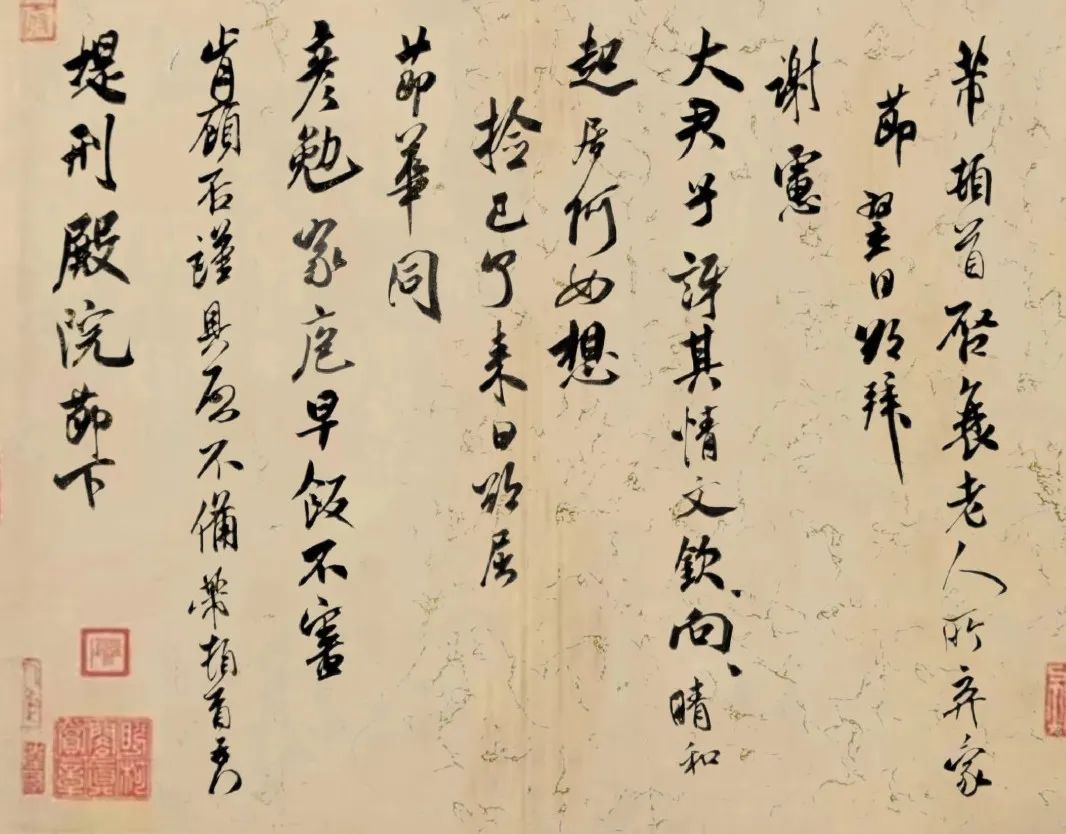 芾頓首啓衰老人所弃家
節翌日欲拜
謝憲
大君子詩其情文欽、向、晴和
起居何如想
撿已了來日欲屈
節華同
彦勉家庖早飯不審
肯顧否謹具啓不備芾頓首
提刑殿院節下